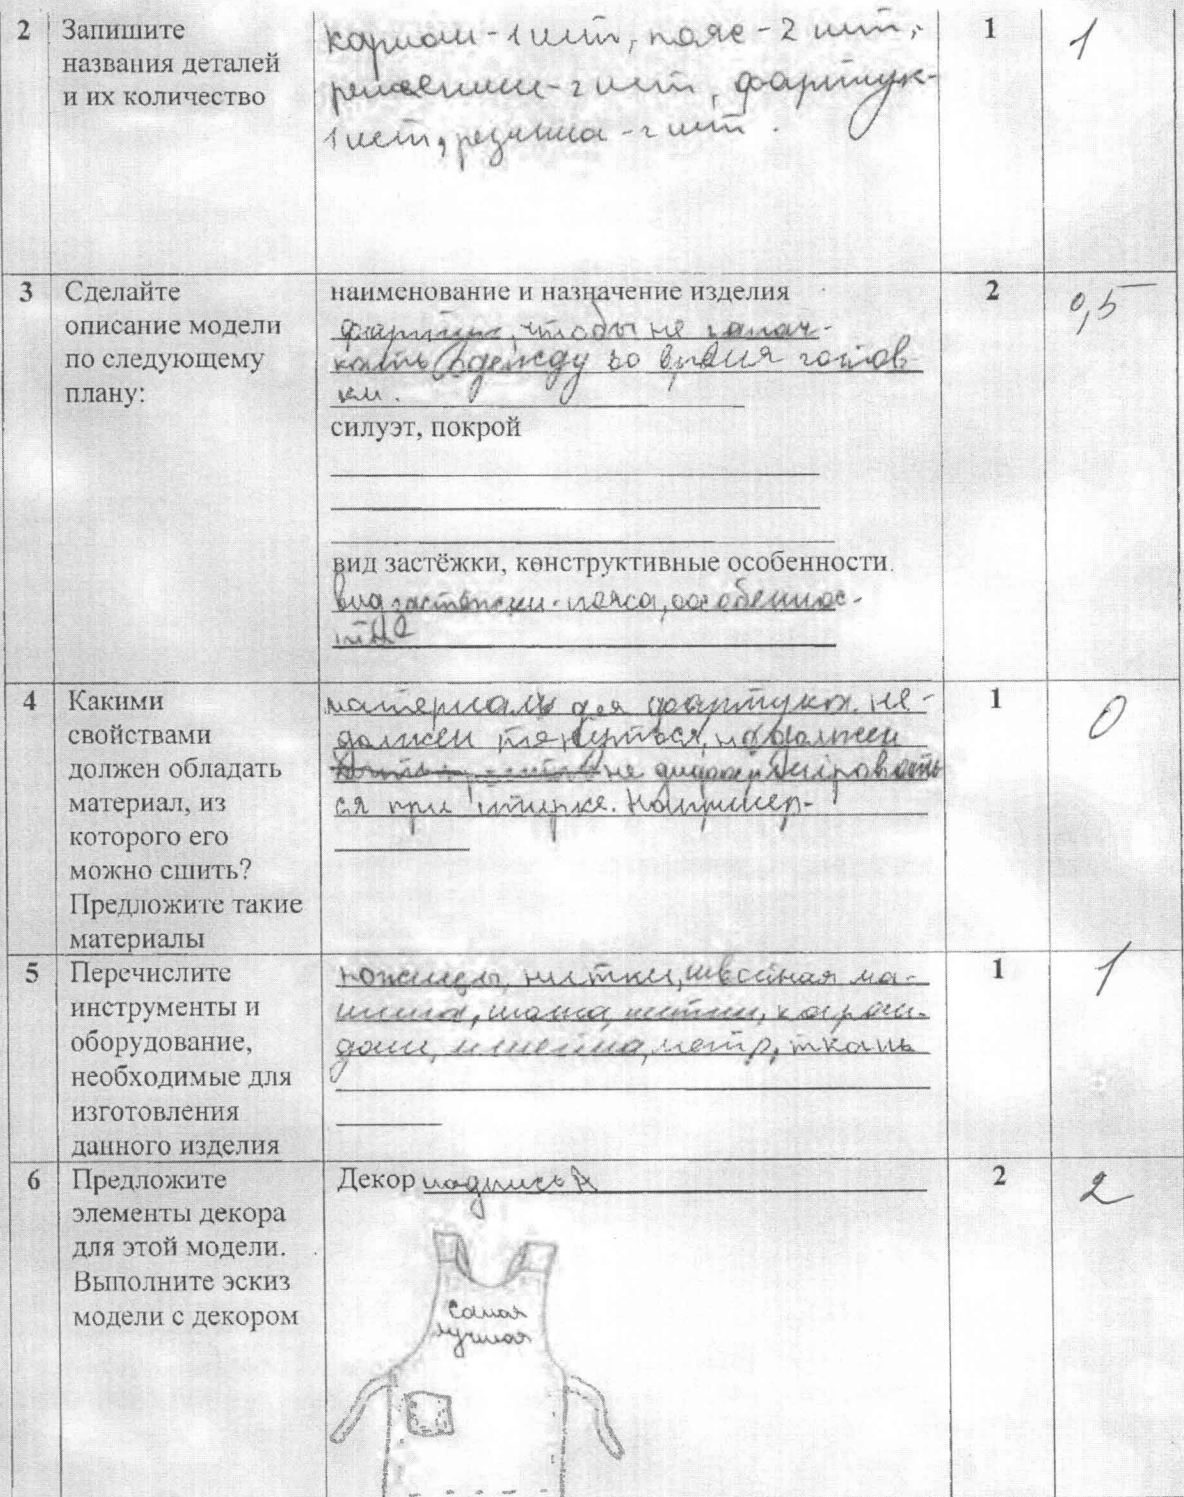 2 Запишите названия деталей и их количество
карман-1 шт, пояс-2 шт,
-2 шт, фартук-
1 шт, -2 шт.
1
1
3 Сделайте описание модели по следующему плану:
наименование и назначение изделия
фартук, чтобы не запач-
кать одежду во время готов-
ки.
силуэт, покрой
вид застёжки, конструктивные особенности.
вид застёжки-пояса, особеннос-
2
0,5
4 Какими свойствами должен обладать материал, из которого его можно сшить? Предложите такие материалы
материаль для фартука не-
должен тянуться, должен
не
ся при стирке. Например-
1
0
5 Перечислите инструменты и оборудование, необходимые для изготовления данного изделия
ножницы, нитки, швейная ма-
шина, нитки, каран-
даш, метр, ткань
1
1
6 Предложите элементы декора для этой модели. Выполните эскиз модели с декором
Декор надпись
Самая
лучшая
2
2